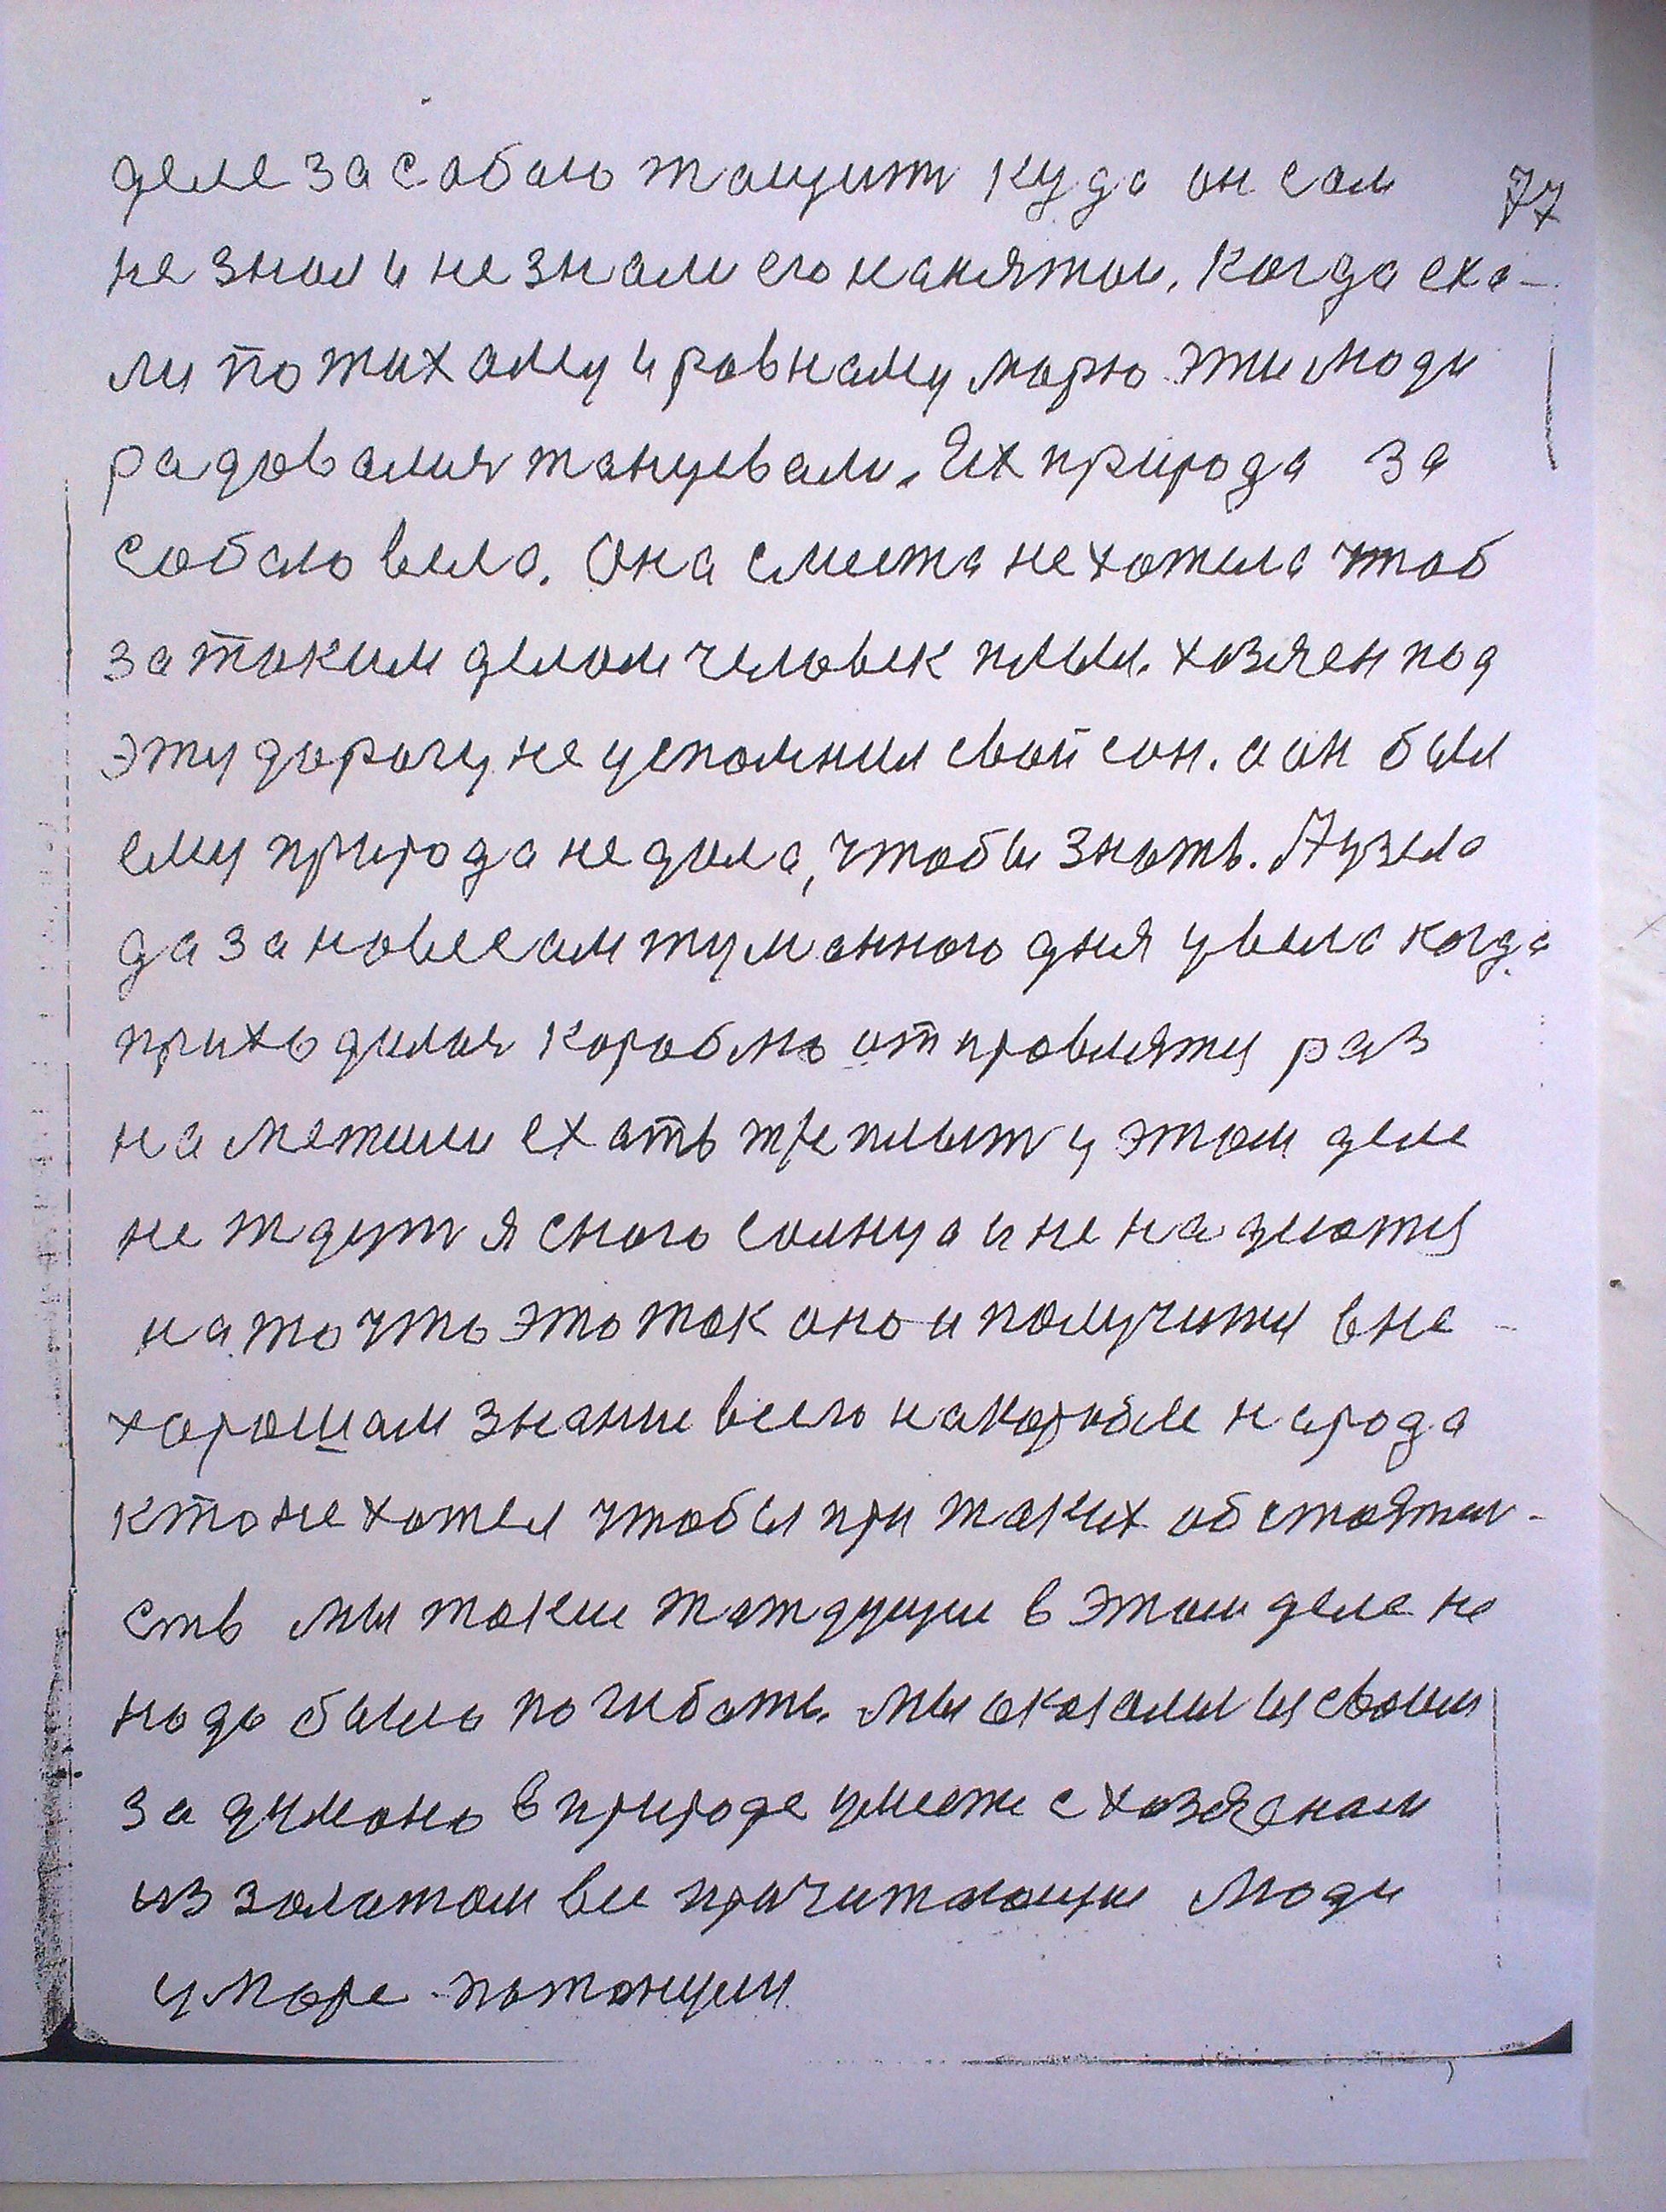 деле за собаю тащит куда он сам 77
не знал и не знали его нанятои. Когда еха-
ли по тихаму и равнаму морю эти люди
радовалися танцевали. Их природа за
собаю вела. Она смеета не хотела чтоб
за таким делам человек плыл. хозяен под
эту дорогу не успомнил свой сон. а он был
ему природа не дала, чтобы знать. А узела
да зановесам туманного дня увела когда
приходилося кораблю отправляти раз
наметили ехать тре плыт у этом деле
не ждут ясного солнца и не надиютца
на то что это так оно и получити в не-
харошам знание всего накорабле народа
кто не хотел чтобы при таких обстоятил-
ств мы такие жаждущие в этом деле не
надо было погибать. мы оказалис и своим
задумано в природе умести с хозяенам
из золотом все причитающие люди
у море потонули